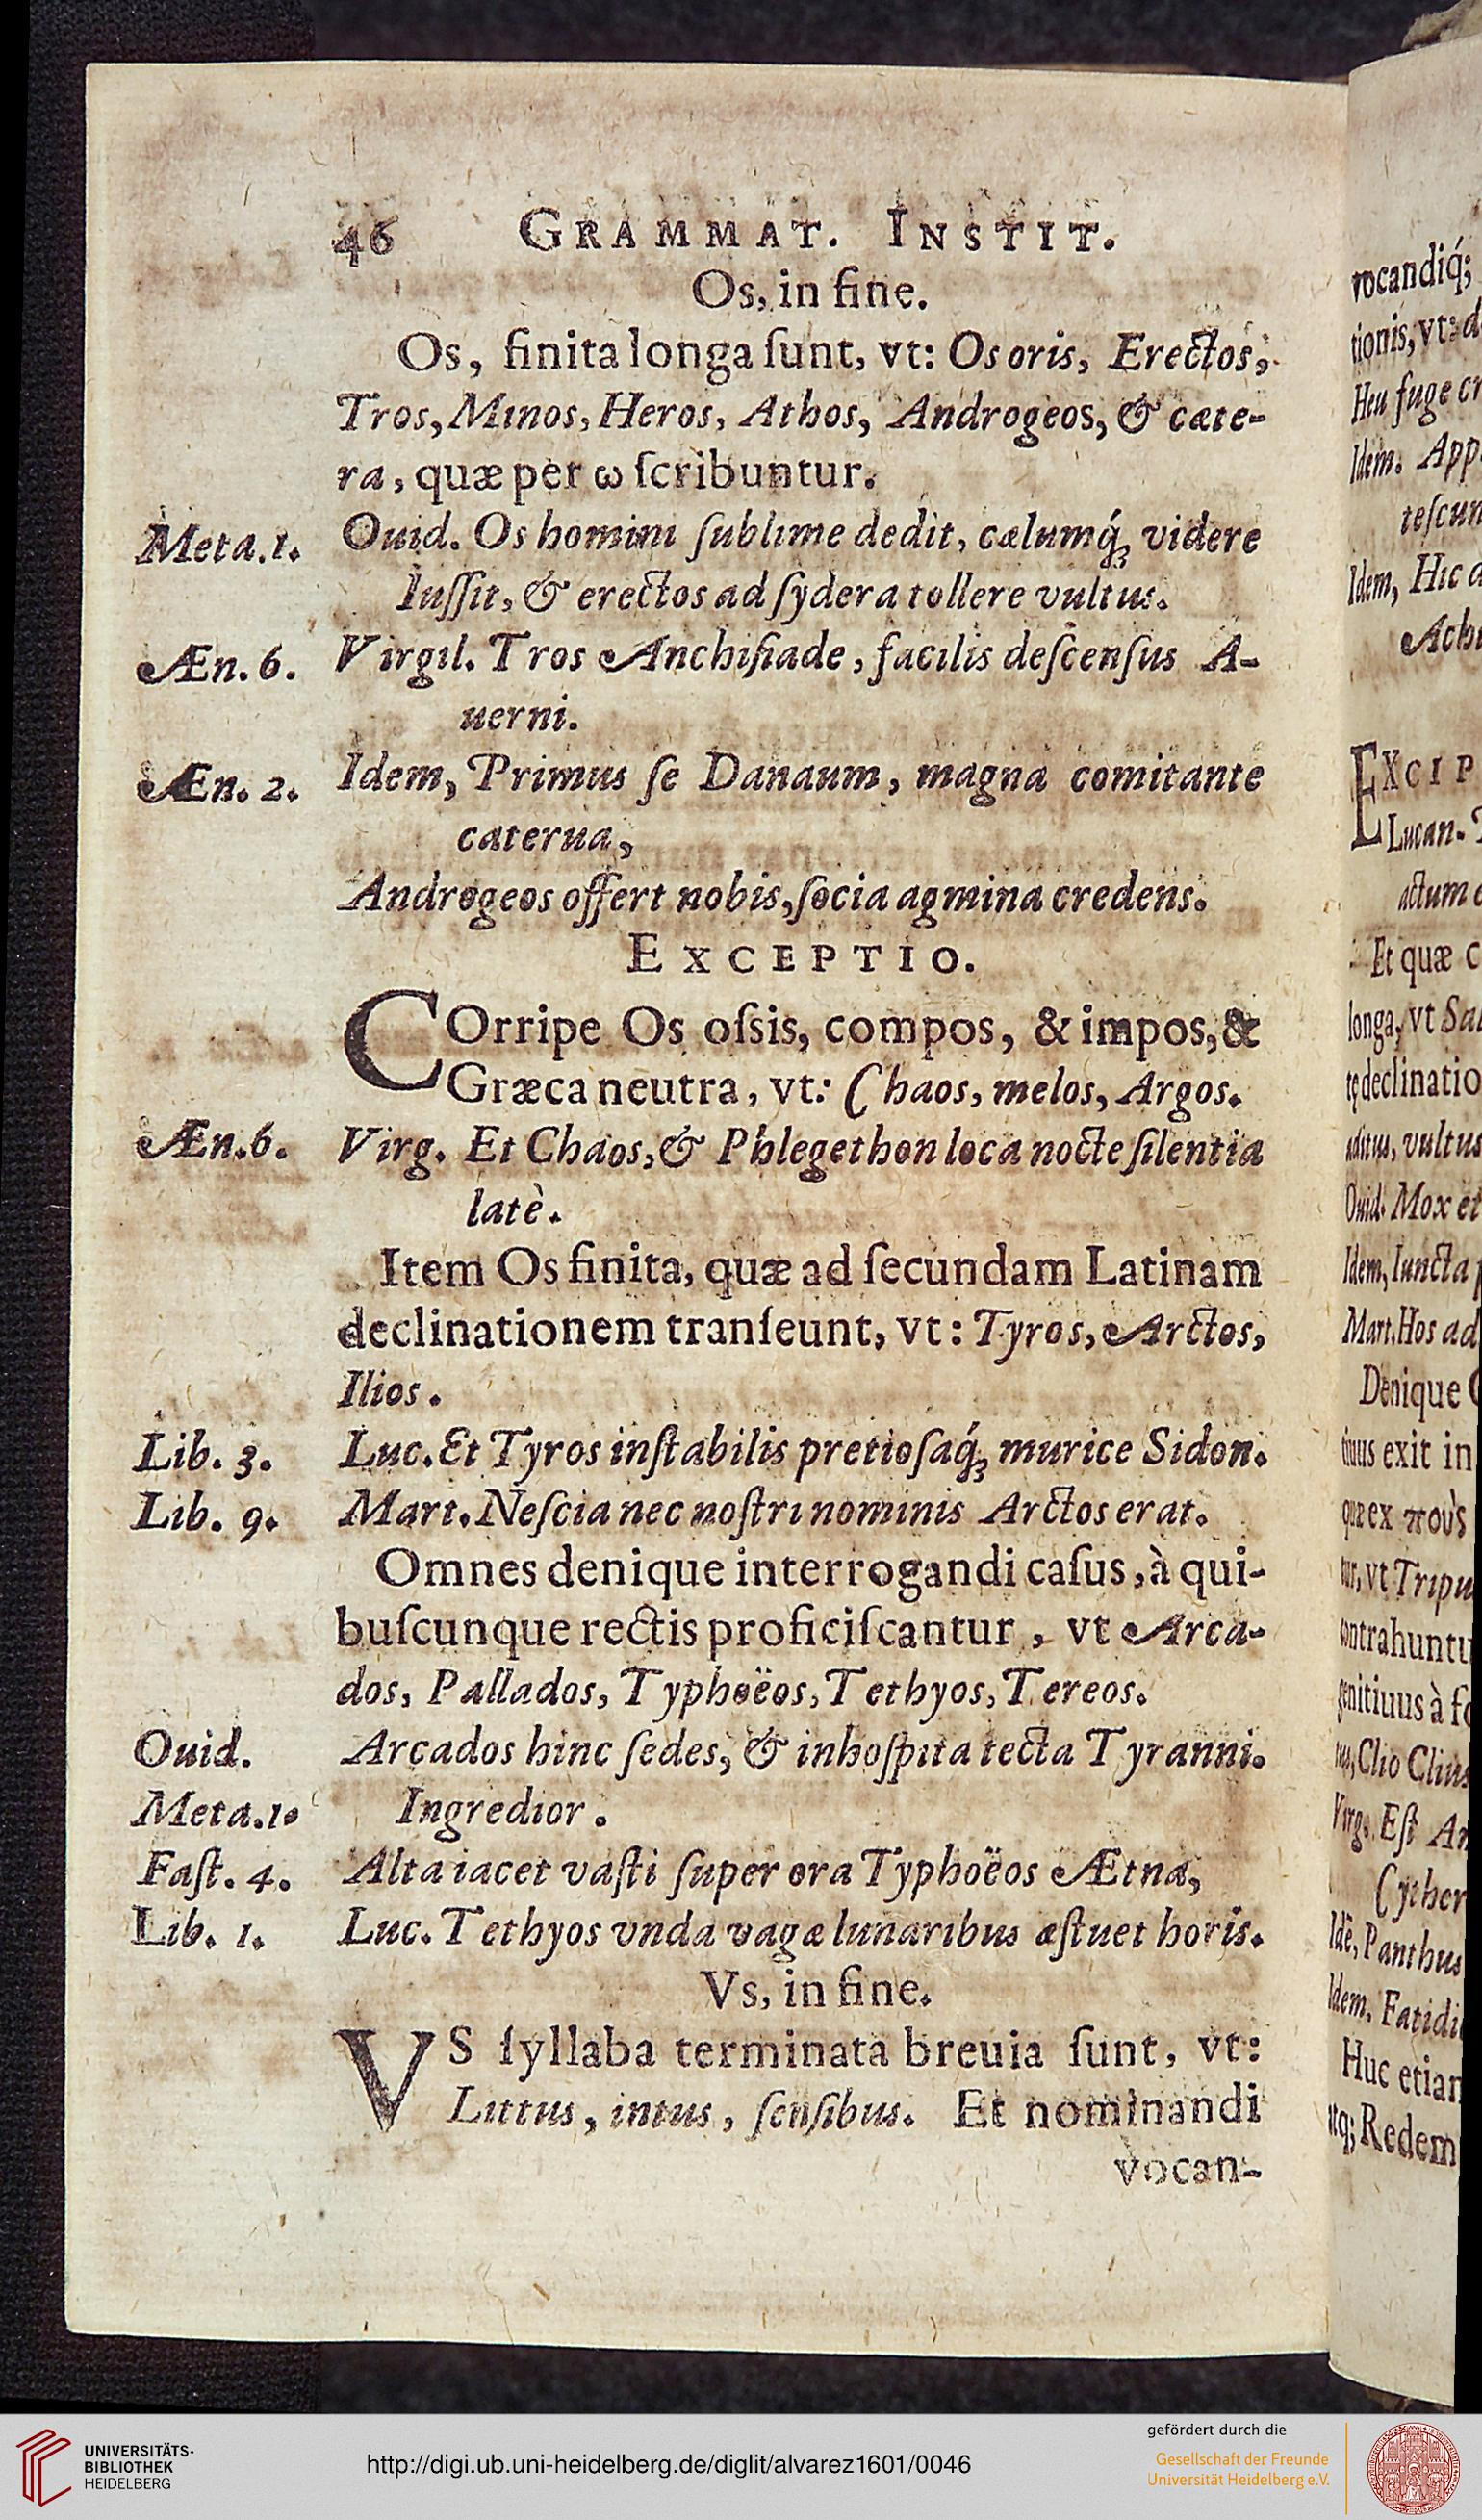 46 GRAMMAT. INSTIT.
Os, in fine.
Os, finita longa ſunt, vt: Os oris, Erectos,
Tros, Minos, Heros, Athos, Androgeos, & cæte-
ra, quæ per ω ſcribuntur.
Meta.1. Ouid. Os homini ſublime dedit, cælumq́; videre
Iuſſit, & erectos ad ſydera tollere vultus.
Æn. 6. Virgil. Tros Anchiſiade, facilis deſcenſus A-
uerni.
Æn. 2. Idem, Primus ſe Danaum, magna comitante
caterua,
Androgeos offert nobis, ſocia agmina credens.
EXCEPTIO.
COrripe Os oſsis, compos, & impos, &
Græca neutra, vt: Chaos, melos, Argos.
Æn.6. Virg. Et Chaos, & Phlegethon loca nocte ſilentia
latè.
Item Os finita, quæ ad ſecundam Latinam
declinationem tranſeunt, vt: Tyros, Arctos,
Ilios.
Lib. 3. Luc. Et Tyros inſtabilis pretioſaq́; murice Sidon.
Lib. 9. Mart. Neſcia nec noſtri nominis Arctos erat.
Omnes denique interrogandi caſus, à qui-
buſcunque rectis proficiſcantur, vt Arca-
dos, Pallados, Typhoëos, Tethyos, Tereos.
Ouid. Arcados hinc ſedes, & inhoſpita tecta Tyranni.
Meta.1. Ingredior.
Faſt. 4. Alta iacet vaſti ſuper ora Typhoëos Ætna,
Lib. 1. Luc. Tethyos vnda vagæ lunaribus æſtuet horis.
Vs, in fine.
VS ſyllaba terminata breuia ſunt, vt:
Littus, intus, ſenſibus. Et nominandi
vocan-
vocandiq́;
tionis, vt:
Heu fuge
Idem.
Idem, Hic
EXCIP
Lucan.
Et quæ
longa, vt
declinatio
aditus, vultus
Ouid. Mox et
Idem, Iuncta
Mart. Hos ad
Denique
exit in
ex πους
vt Tripu
contrahuntu
genitiuus à
Clio Clius
Virg. Eſt
Cyther
Idē, Panthus
Idem. Fatidi
Huc etiam
Redem
UNIVERSITÄTS-
BIBLIOTHEK
HEIDELBERG
http://digi.ub.uni-heidelberg.de/diglit/alvarez1601/0046
gefördert durch die
Gesellschaft der Freunde
Universität Heidelberg e.V.